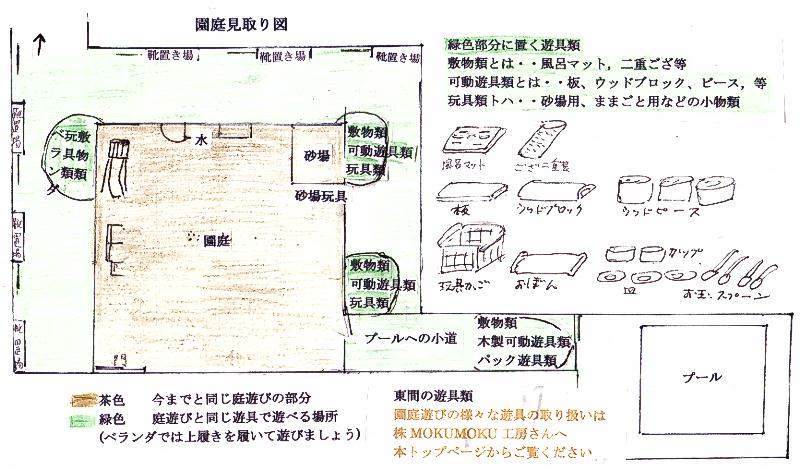 園庭見取り図
靴置き場
靴置き場
靴置き場
緑色部分に置く遊具類
敷物類とは・・風呂マット，二重ござ等
可動遊具類とは・・板、ウッドブロック、ピース，等
玩具類トハ・・砂場用、ままごと用などの小物類
靴置場
ベランダ
玩具類
敷物類
水
砂場
敷物類
可動遊具類
玩具類
砂場玩具
風呂マット
ござ二重
板
ウッドブロック
ウッドピース
靴置場
園庭
敷物類
可動遊具類
玩具類
玩具かご
おぼん
カップ
皿
お玉・スプーン
靴置場
門
プールへの小道
敷物類
木製可動遊具類
バック遊具類
プール
茶色 今までと同じ庭遊びの部分
緑色 庭遊びと同じ遊具で遊べる場所
(ベランダでは上履きを履いて遊びましょう)
東間の遊具類
園庭遊びの様々な遊具の取り扱いは
株MOKUMOKU工房さんへ
本トップページからご覧ください